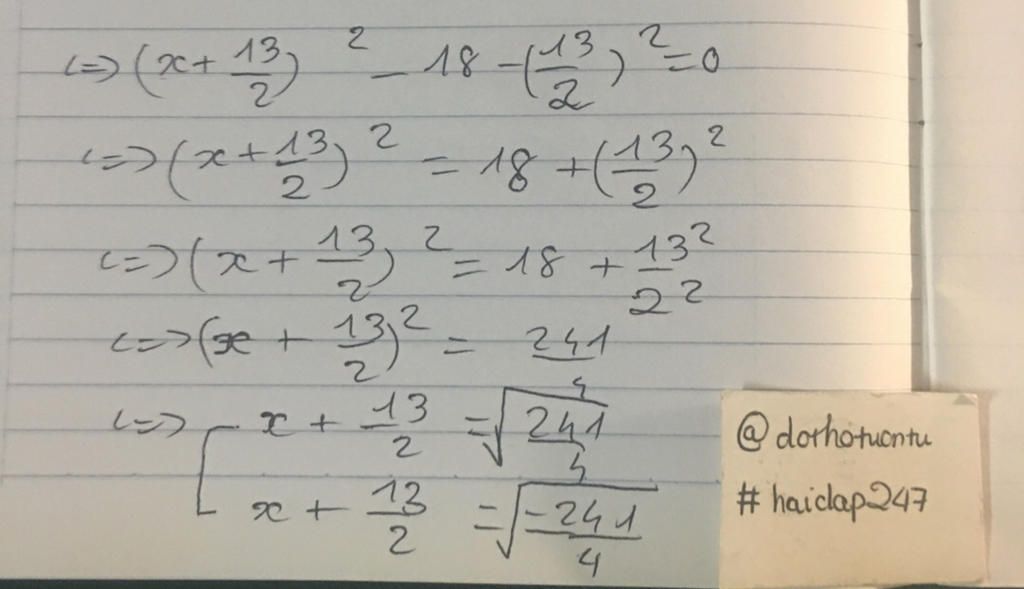 <=> (x + 13/2)² - 18 - (13/2)² = 0
<=> (x + 13/2)² = 18 + (13/2)²
<=> (x + 13/2)² = 18 + 13²/2²
<=> (x + 13/2)² = 241/4
<=> [ x + 13/2 = √(241/4)
x + 13/2 = √(-241/4)
@dorhotuontu
#haiclap247